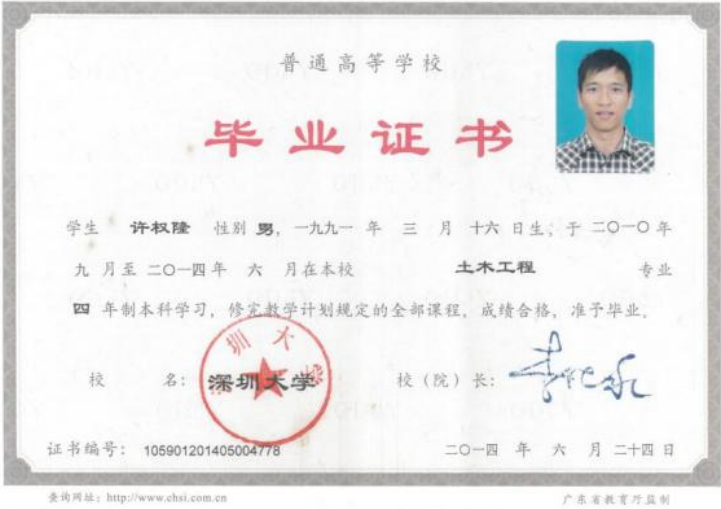 普通高等学校
毕业证书
学生 许权隆 性别 男，一九九一 年 三 月 十六 日生，于 二〇一〇 年
九 月至 二〇一四 年 六 月在本校 土木工程 专业
四 年制本科学习，修完教学计划规定的全部课程，成绩合格，准予毕业。
校 名： 深圳大学 校（院）长：
深圳大学
证书编号： 105901201405004778 二〇一四 年 六 月 二十四 日
查询网址：http://www.chsi.com.cn 广东省教育厅监制